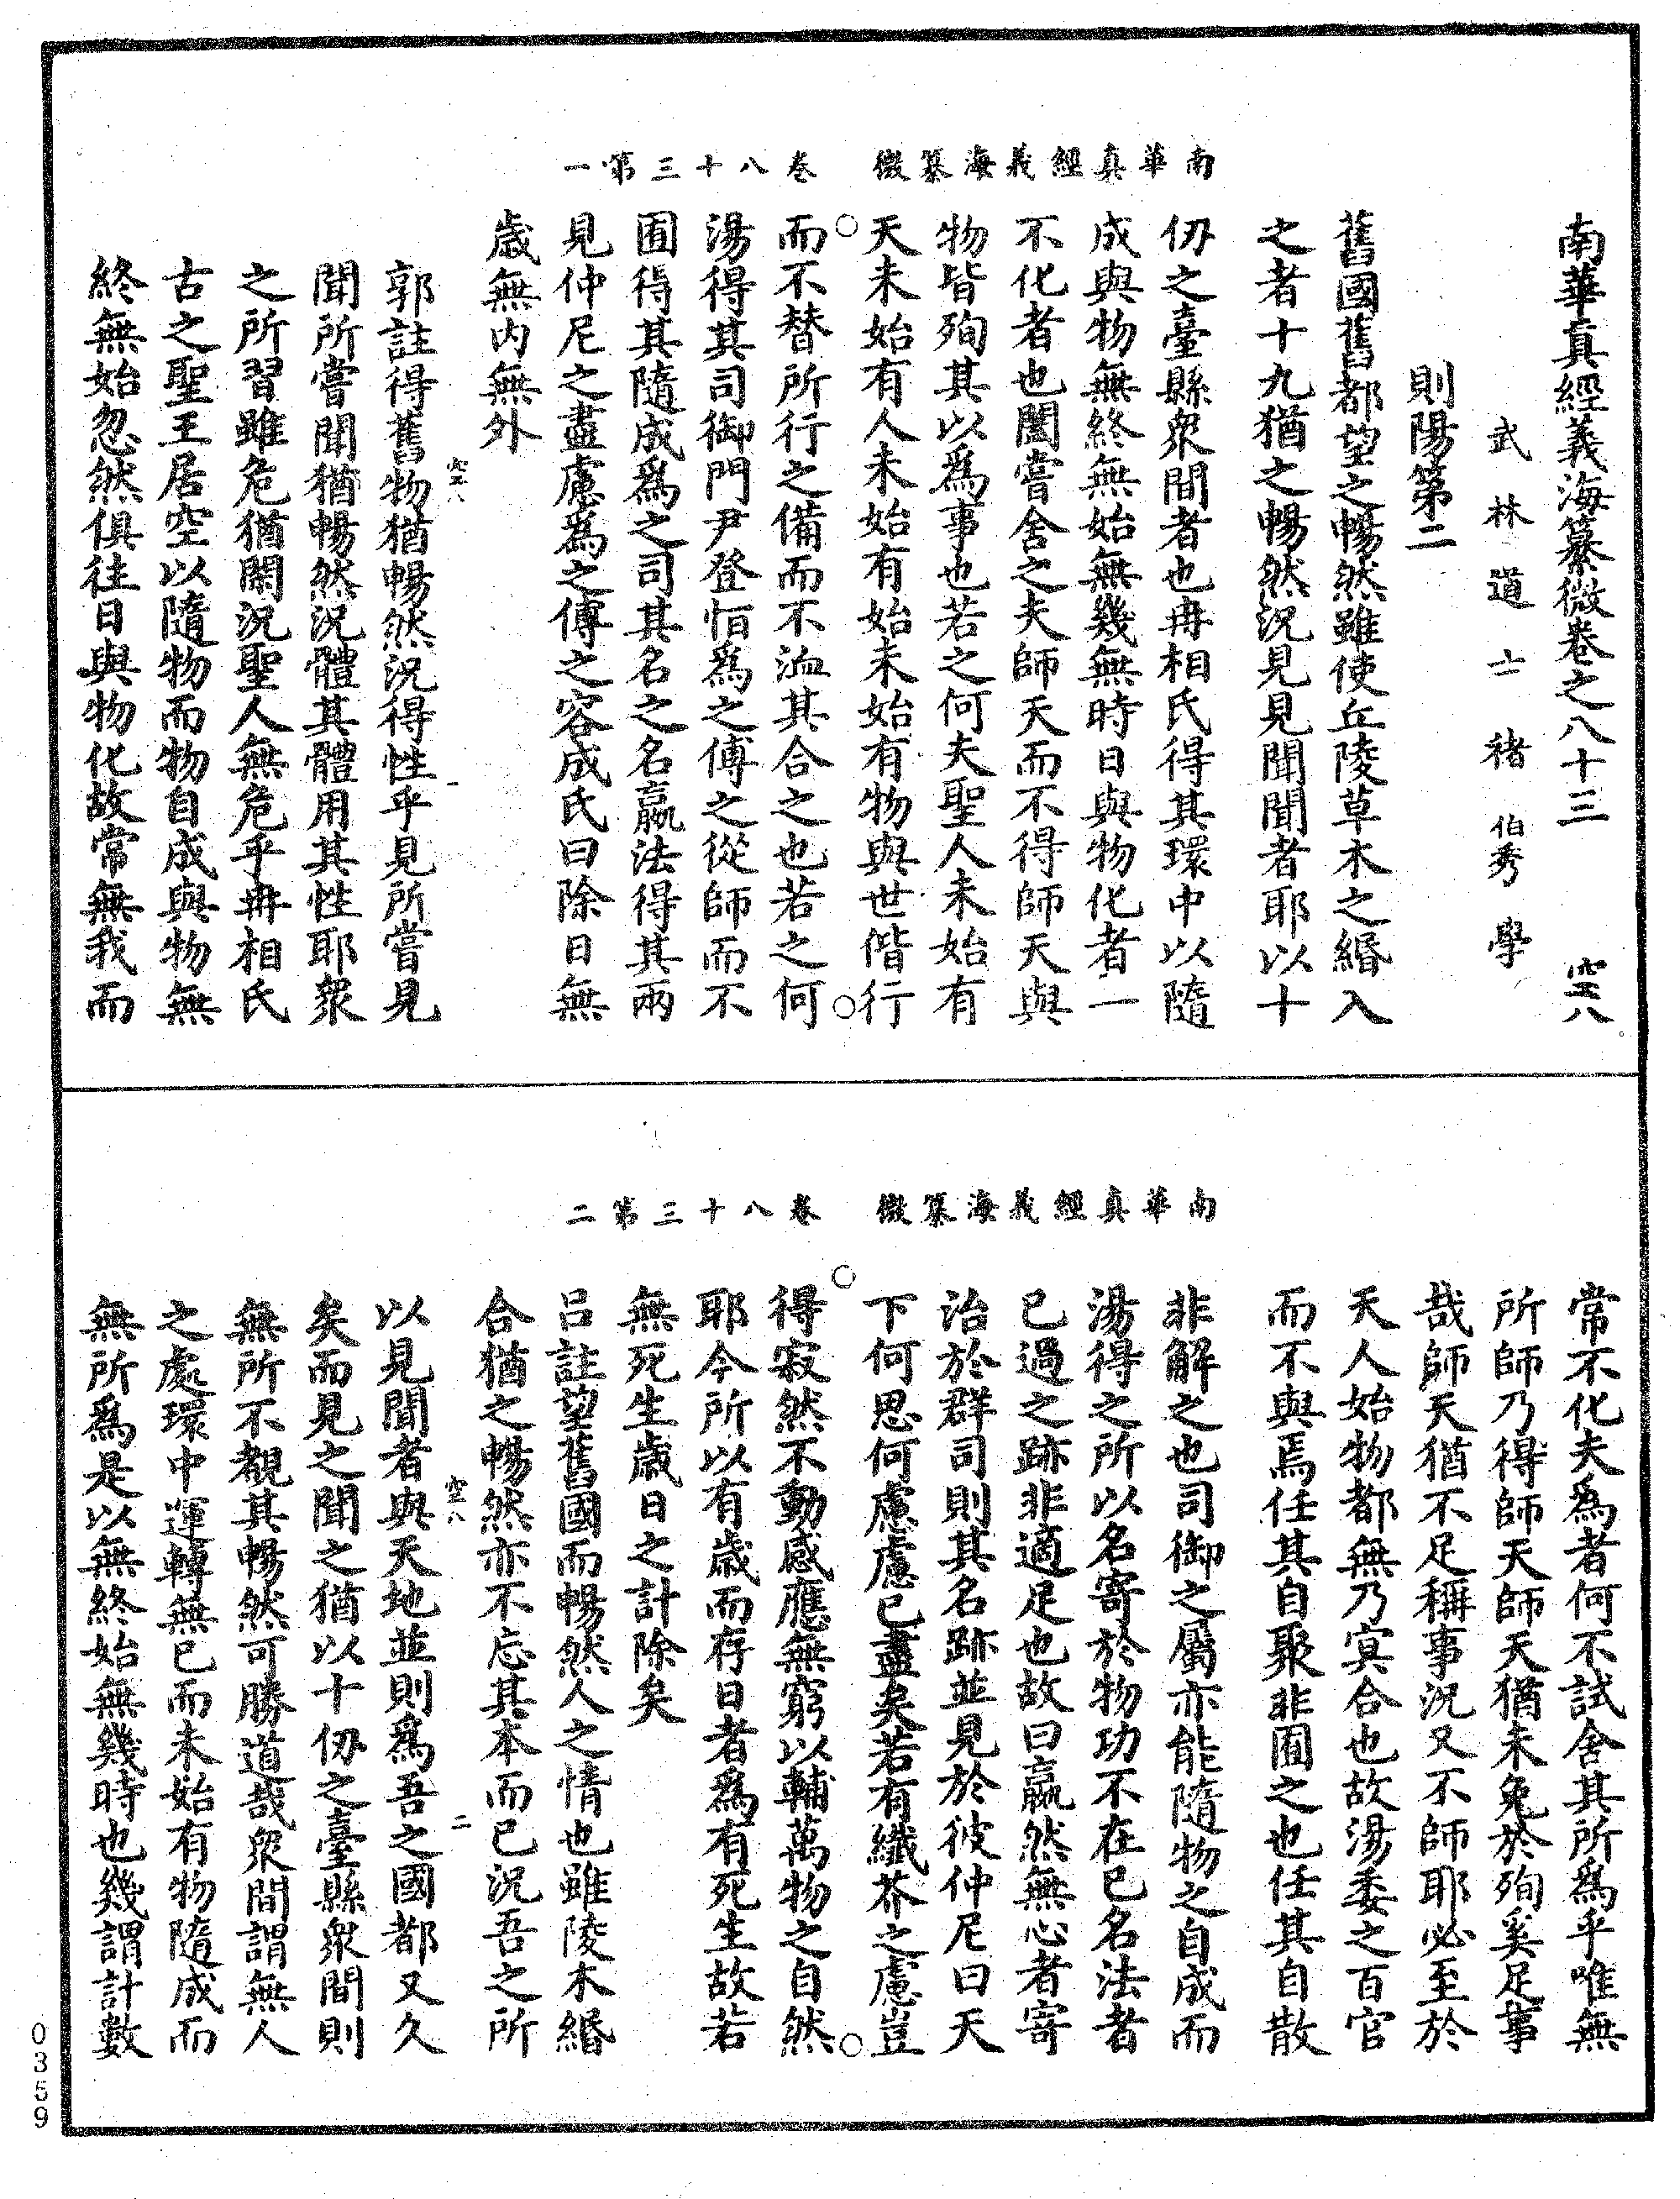 南華真經義海纂微　卷八十三第一
南華真經義海纂微卷之八十三　空八
武林道士褚伯秀學
則陽第二
舊國舊都望之暢然雖使丘陵草木之緡入
之者十九猶之暢然況見見聞聞者耶以十
仞之臺縣眾間者也冉相氏得其環中以隨
成與物無終無始無幾無時日與物化者一
不化者也闔嘗舍之夫師天而不得師天與
物皆殉其以為事也若之何夫聖人未始有
天未始有人未始有始未始有物與世偕行
而不替所行之備而不洫其合之也若之何
湯得其司御門尹登恒為之傅之從師而不
囿得其隨成為之司其名之名嬴法得其兩
見仲尼之盡慮為之傅之容成氏曰除日無
歲無內無外
郭註得舊物猶暢然況得性乎見所嘗見
空八　一
聞所嘗聞猶暢然況體其體用其性耶眾
之所習雖危猶閑況聖人無危乎冉相氏
古之聖王居空以隨物而物自成與物無
終無始忽然俱往日與物化故常無我而
南華真經義海纂微　卷八十三第二
常不化夫為者何不試舍其所為乎唯無
所師乃得師天師天猶未免於殉奚足事
哉師天猶不足稱事況又不師耶必至於
天人始物都無乃冥合也故湯委之百官
而不與焉任其自聚非囿之也任其自散
非解之也司御之屬亦能隨物之自成而
湯得之所以名寄於物功不在已名法者
已過之跡非適足也故曰嬴然無心者寄
治於群司則其名跡並見於彼仲尼曰天
下何思何慮慮已盡矣若有纖芥之慮豈
得寂然不動感應無窮以輔萬物之自然
耶今所以有歲而存日者為有死生故若
無死生歲日之計除矣
呂註望舊國而暢然人之情也雖陵木緡
合猶之暢然亦不忘其本而已況吾之所
空八　二
以見聞者與天地並則為吾之國都又久
矣而見之聞之猶以十仞之臺縣眾間則
無所不覩其暢然可勝道哉眾間謂無人
之處環中運轉無已而未始有物隨成而
無所為是以無終始無幾時也幾謂計數
0359